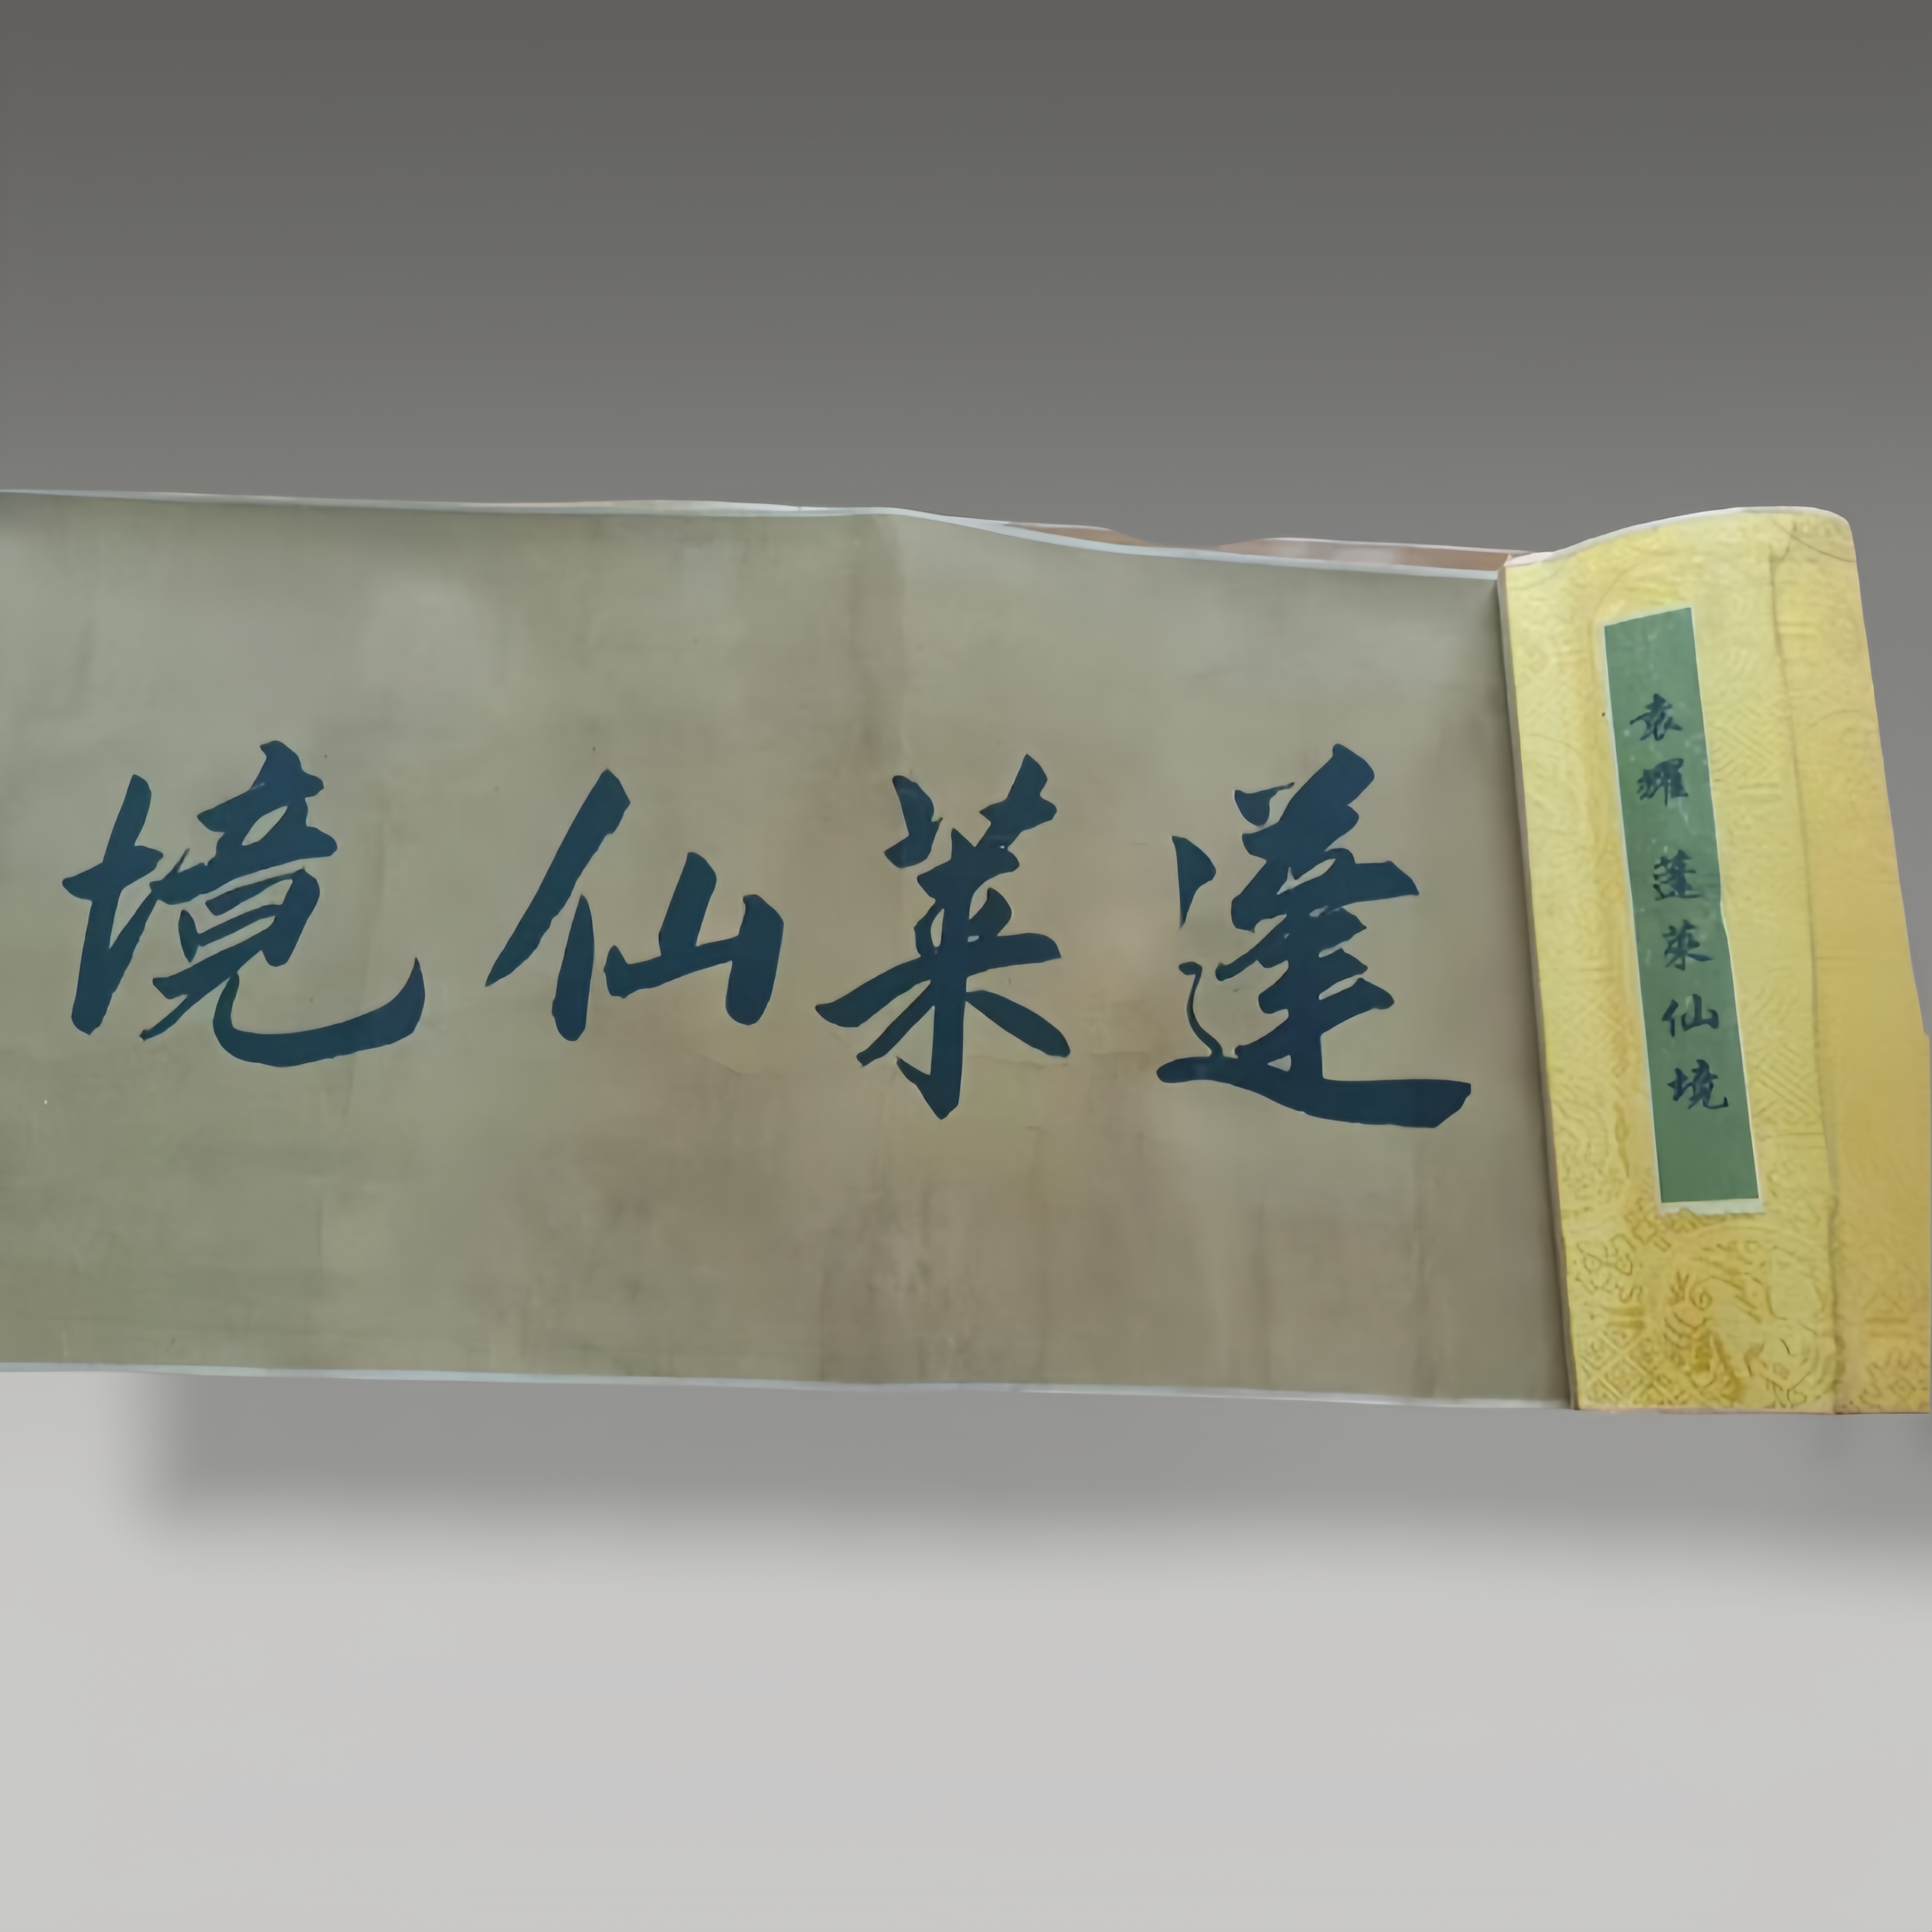 蓬萊仙境
袁耀 蓬萊仙境